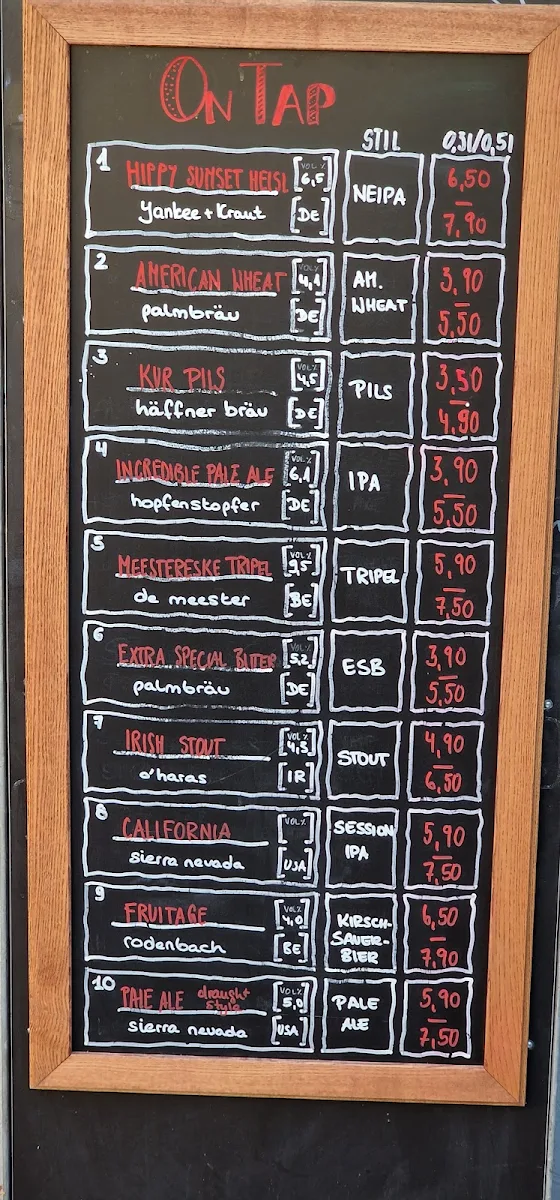 ON TAP
STIL 0,3l/0,5l
1 HIPPY SUNSET HEISL VOL% 6,5 NEIPA 6,50
yankee + Kraut DE 7,90
2 AMERICAN WHEAT VOL% 4,1 AM. WHEAT 3,90
palmbräu DE 5,50
3 KUR PILS VOL% 4,5 PILS 3,50
häffner bräu DE 4,90
4 INCREDIBLE PALE ALE VOL% 6,1 IPA 3,90
hopfenstopfer DE 5,50
5 MEESTERESKE TRIPEL VOL% 9,5 TRIPEL 5,90
de meester BE 7,50
6 EXTRA SPECIAL BITER VOL% 5,2 ESB 3,90
palmbräu DE 5,50
7 IRISH STOUT VOL% 4,3 STOUT 4,90
o'haras IR 6,50
8 CALIFORNIA VOL% SESSION IPA 5,90
sierra nevada USA 7,50
9 FRUITAGE VOL% 4,0 KIRSCH-SAUER-BIER 6,50
rodenbach BE 7,90
10 PALE ALE draught style VOL% 5,0 PALE ALE 5,90
sierra nevada USA 7,50